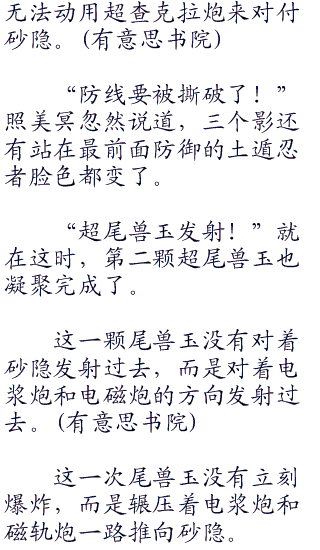 无法动用超查克拉炮来对付
砂隐。(有意思书院)
“防线要被撕破了！”
照美冥忽然说道，三个影还
有站在最前面防御的土遁忍
者脸色都变了。
“超尾兽玉发射！”就
在这时，第二颗超尾兽玉也
凝聚完成了。
这一颗尾兽玉没有对着
砂隐发射过去，而是对着电
浆炮和电磁炮的方向发射过
去。(有意思书院)
这一次尾兽玉没有立刻
爆炸，而是辗压着电浆炮和
磁轨炮一路推向砂隐。